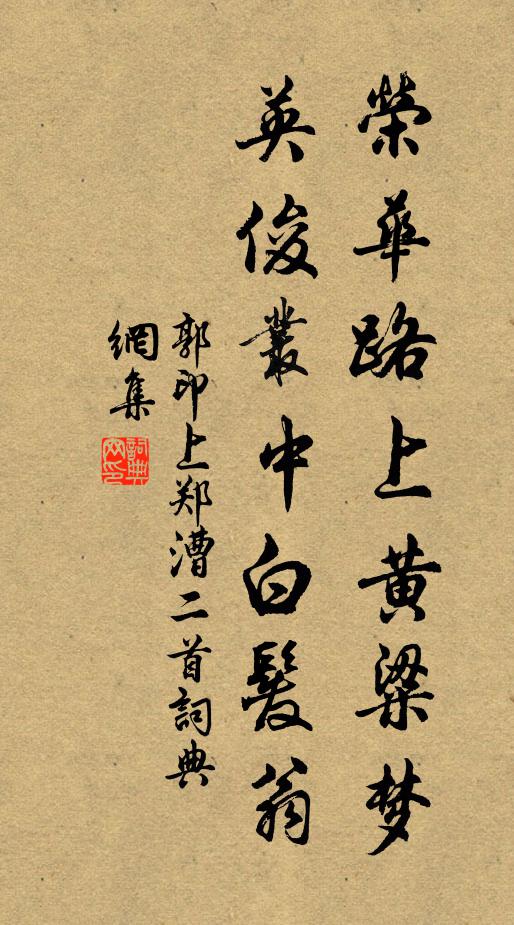 榮華路上黄粱梦
英俊叢中白髮翁
郭印上郑漕二首詞典
網集
詞典网印